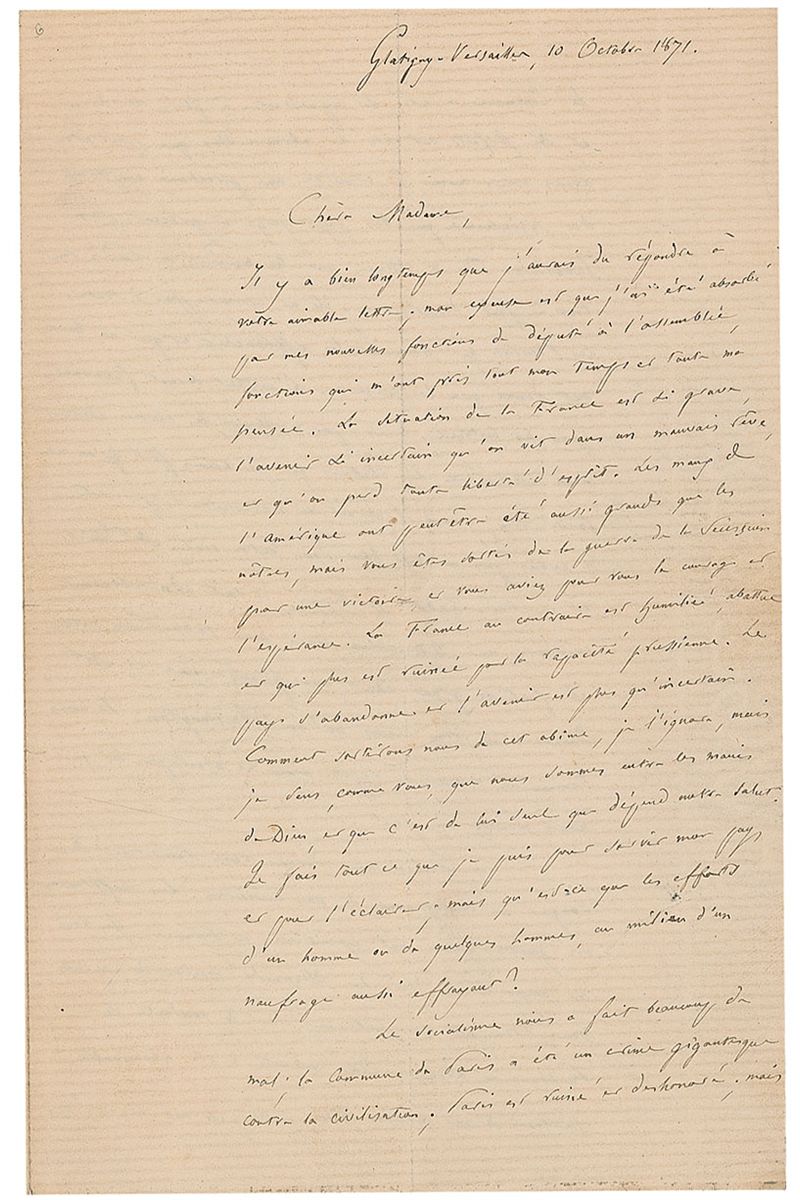 6
Glatigny-Versailles, 10 Octobre 1871.
Chère Madame,
Il y a bien longtemps que j'aurais du répondre à
votre aimable lettre; mon excuse est que j'ai été absorbé
par mes nouvelles fonctions de député à l'assemblée,
fonctions qui m'ont pris tout mon temps et toute ma
pensée. La situation de la France est si grave,
l'avenir si incertain qu'on vit dans un mauvais rêve,
et qu'on perd toute liberté d'esprit. Les maux de
l'Amérique ont peut être été aussi grands que les
nôtres, mais vous êtes sortis de la guerre de la Sécession
par une victoire, et vous aviez pour vous le courage et
l'espérance. La France au contraire est humiliée, abattue
et qui plus est ruinée par la rapacité prussienne. Le
pays s'abandonne et l'avenir est plus qu'incertain.
Comment sortirons nous de cet abime, je l'ignore, mais
je sens, comme vous, que nous sommes entre les mains
de Dieu, et que c'est de lui seul que dépend notre salut.
Je fais tout ce que je puis pour servir mon pays
et pour l'éclairer; mais qu'est-ce que les efforts
d'un homme ou de quelques hommes, au milieu d'un
naufrage aussi effrayant?
Le socialisme nous a fait beaucoup de
mal; la Commune de Paris a été un crime gigantesque
contre la civilisation; Paris est ruiné et deshonoré; mais